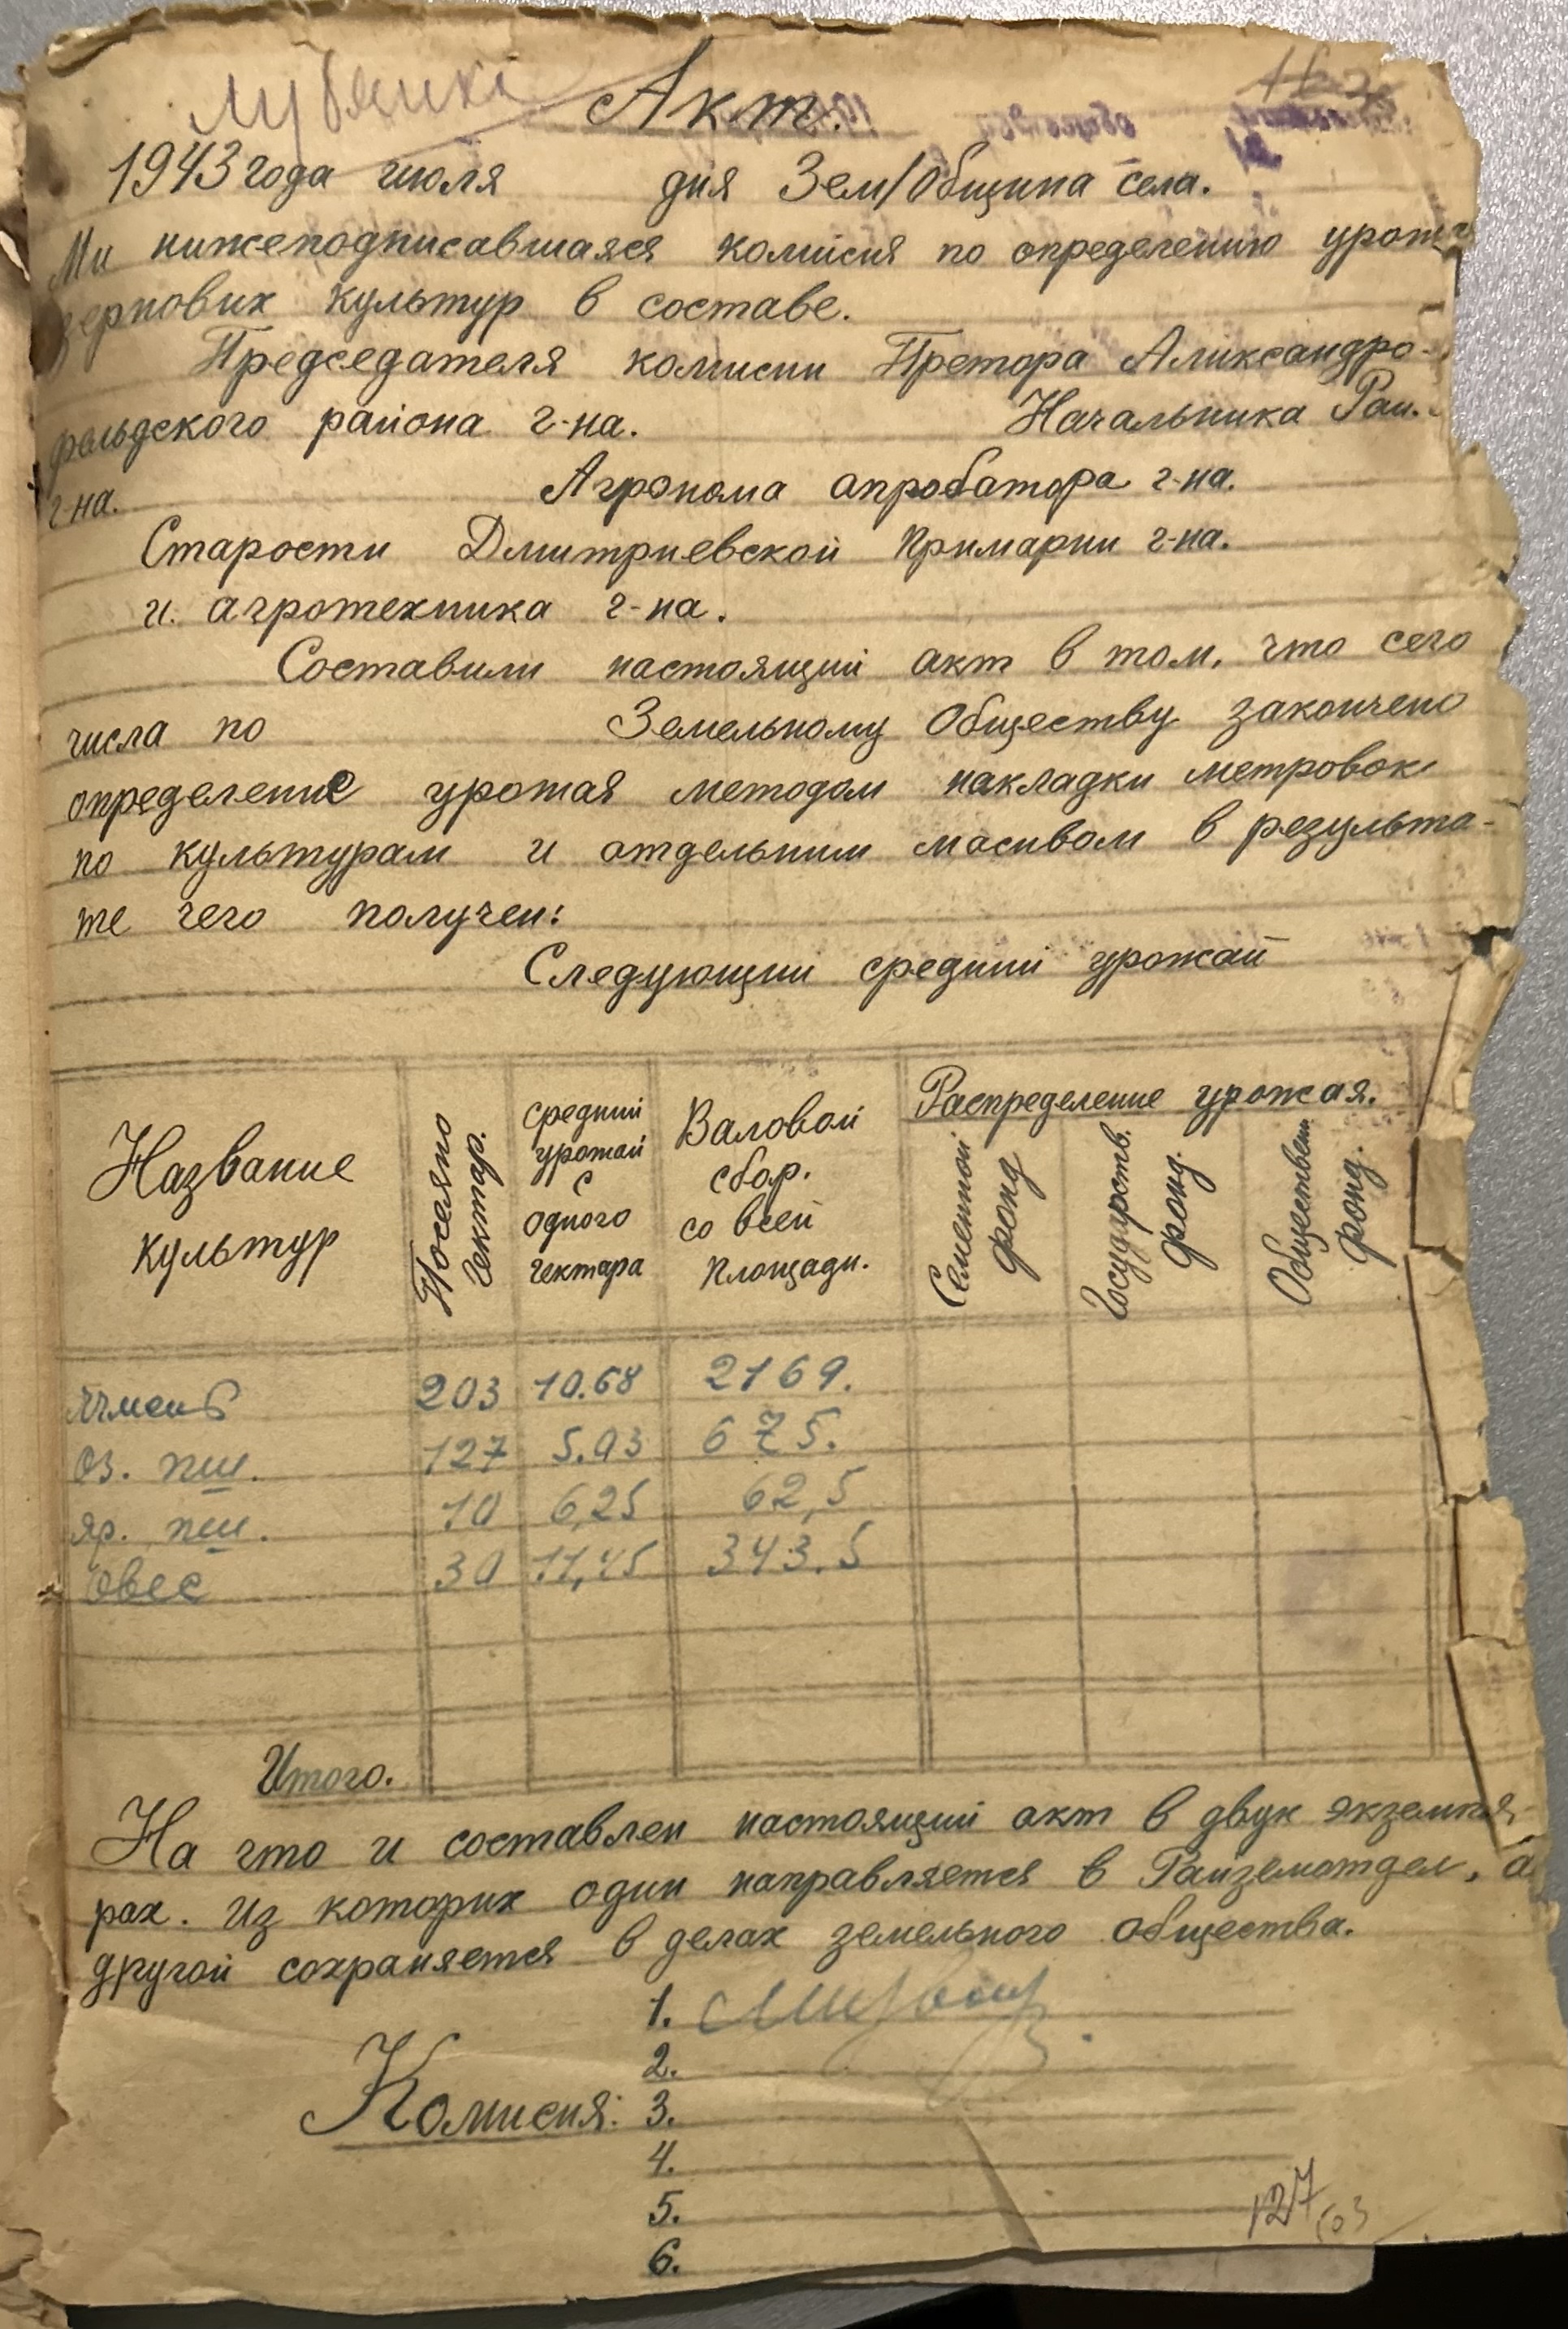 Лубянка
Акт.
1943 года июля дня Зем/Община села.
Ми нижеподписавшаяся комисия по определению урож
зернових культур в составе.
Председателя комисии Претора Аликсандро-
фельдского района г-на. Начальника Рай.
г-на. Агронома апробатора г-на.
Старости Дмитриевской Примарии г-на.
и. агротехника г-на.
Составили настоящий акт в том, что сего
числа по Земельному Обществу закончено
определение урожая методом накладки метровок
по культурам и отдельним масивом в результа-
те чего получен:
Следующий средний урожай
Название культур
Посеяно гектар.
средний урожай с одного гектара
Валовой сбор. со всей площади.
Распределение урожая.
Семенной фонд
Государств. фонд.
Обществен фонд.
Ячмень 203 10.68 2169.
Оз. пш. 127 5.03 675.
яр. пш. 10 6,25 62,5
Овес 30 11,45 343.5
Итого.
На что и составлен настоящий акт в двух экземпля-
рах. Из которих один направляется в Райземотдел, а
другой сохраняется в делах земельного общества.
Комисия:
1.
2.
3.
4.
5.
6.
127